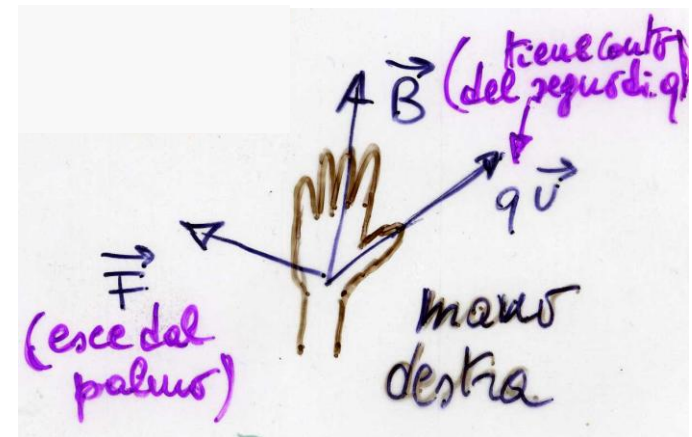 B
(tiene conto
del segno di q)
q v
F
(esce dal
palmo)
mano
destra